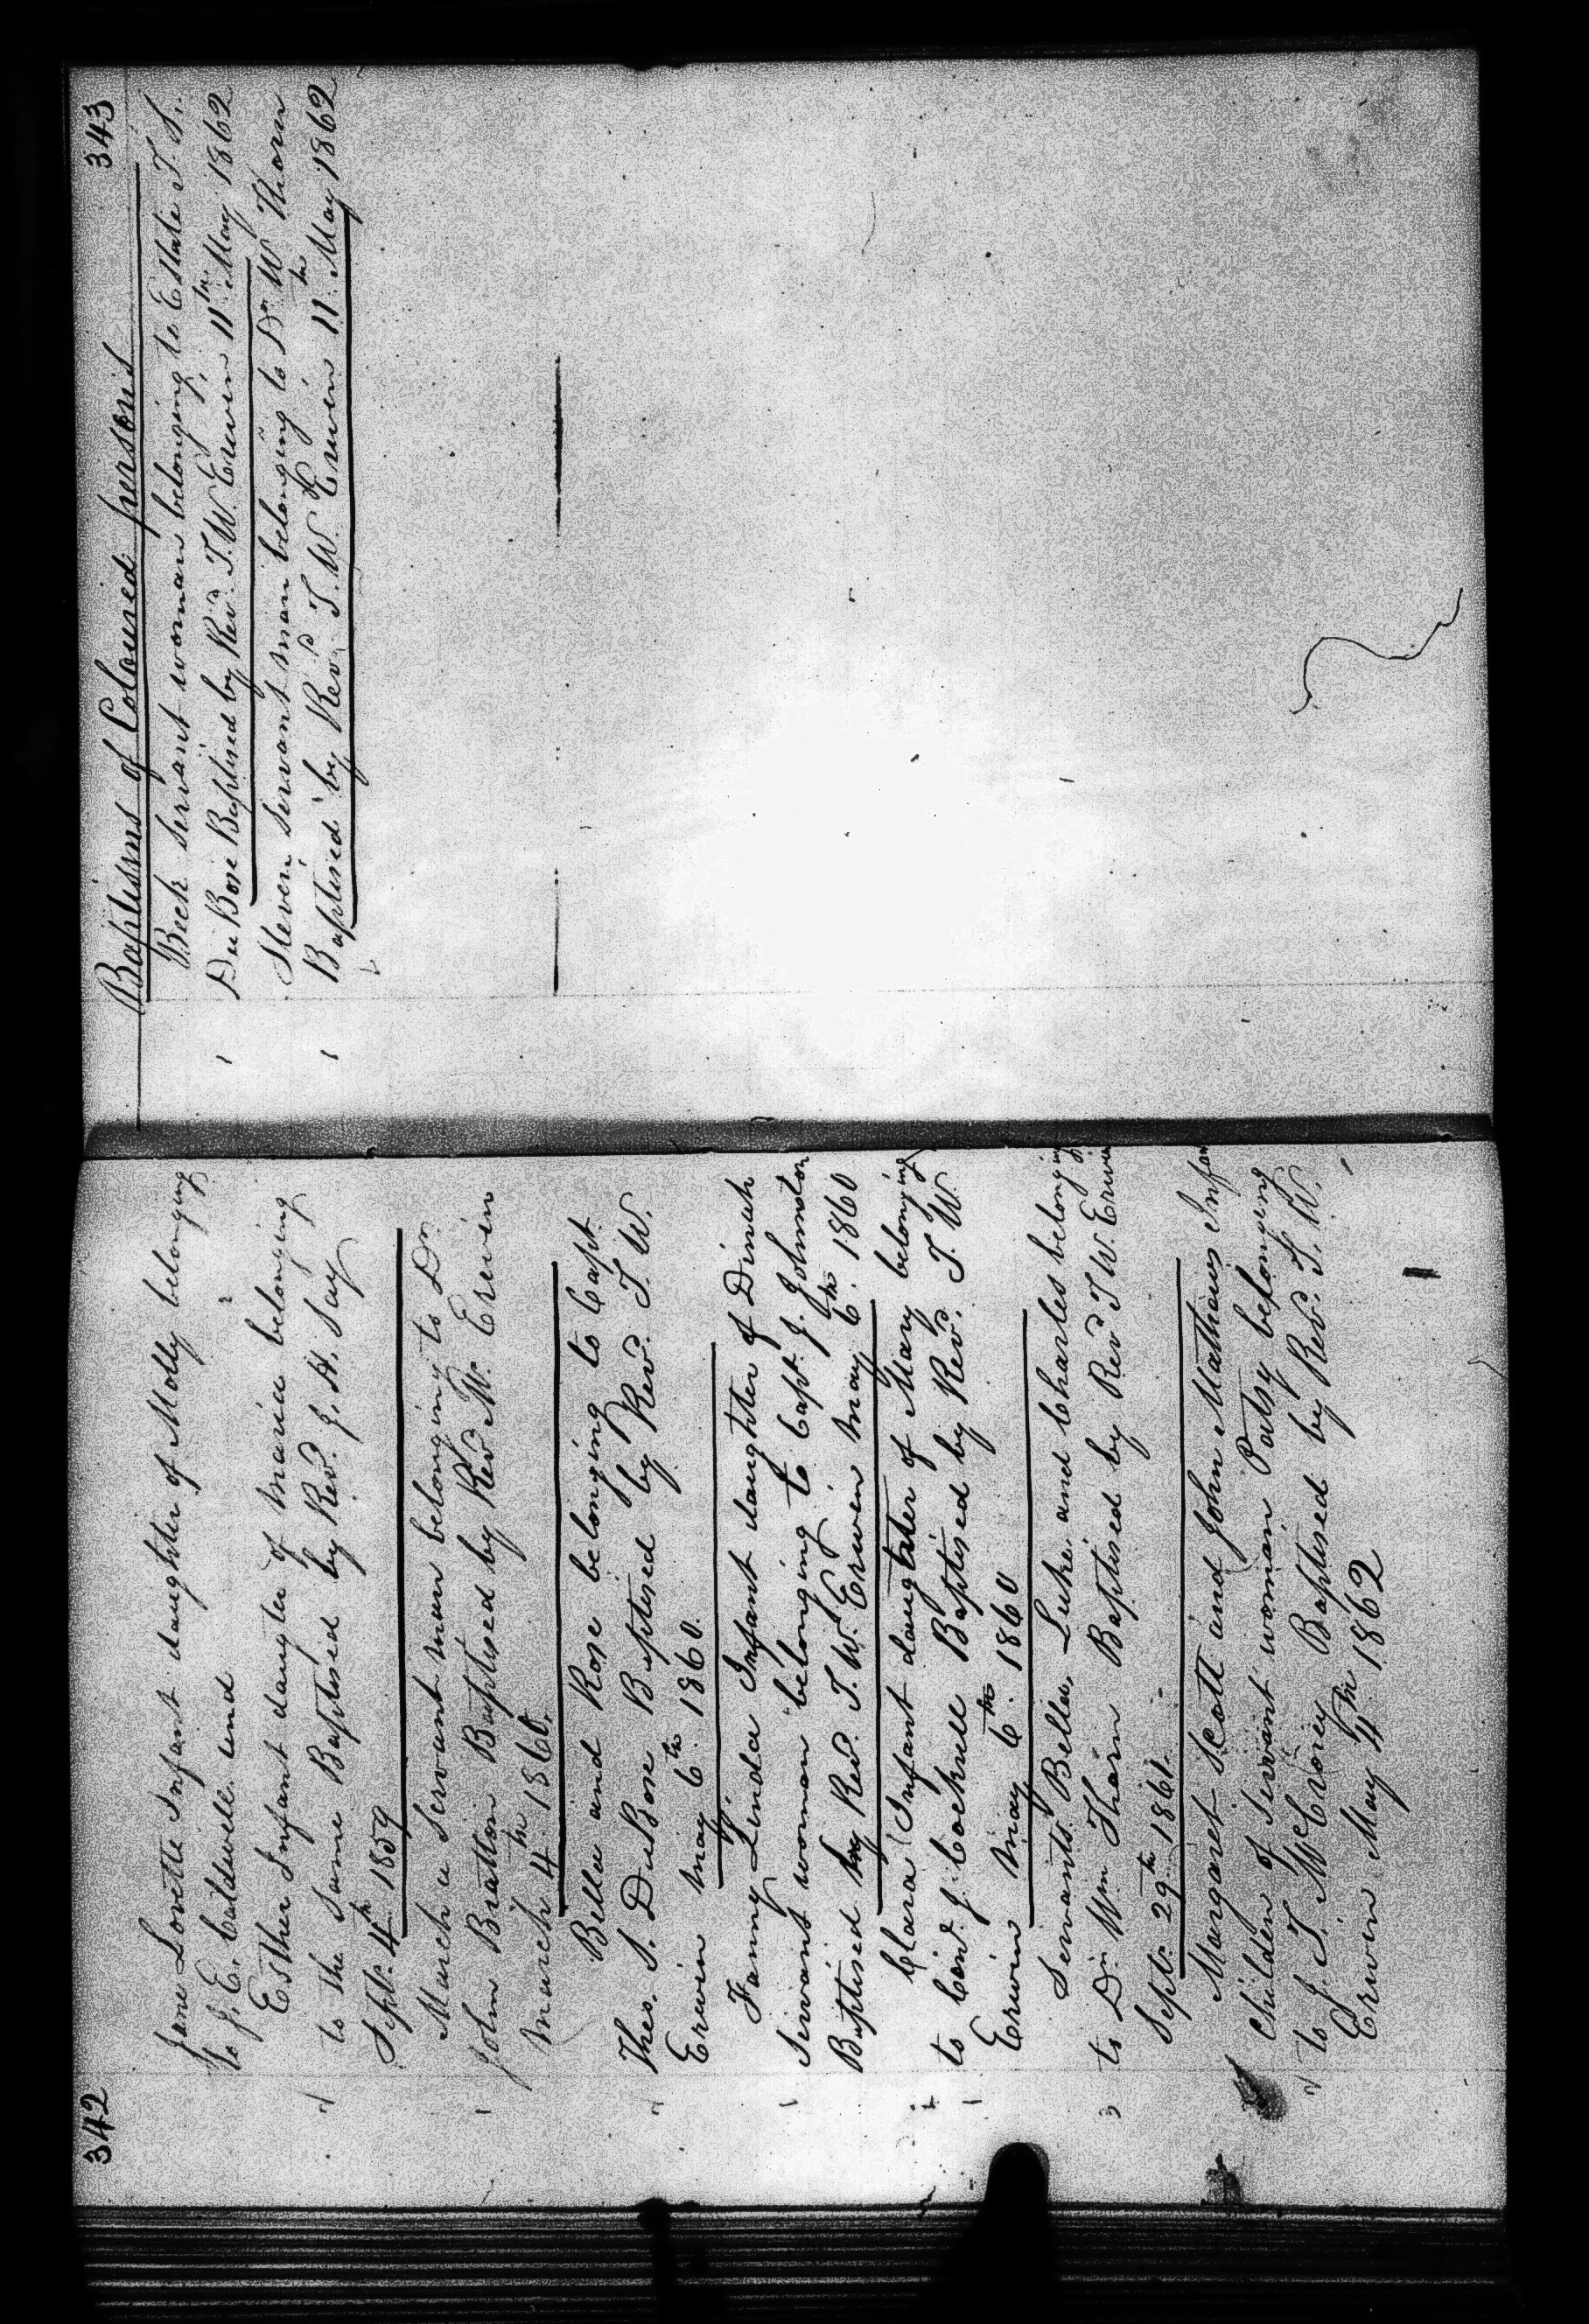 342
Jane Lovette Infant daughter of Molly belonging
to J. E. Caldwell and
Esther Infant daughter of Maria belonging
to the Same Baptised by Revd. J. H. Say
Sept. 4th 1859
March a Servant man belonging to Dr.
John Bratton Baptised by Revd W. Erwin
March 4th 1860.
Bella and Rose belonging to Capt.
Theo. S. DuBose Baptised by Revd. T. W.
Erwin May 6th 1860.
Fanny Linda Infant daughter of Dinah
Servant woman belonging to Capt. J. Johnston
Baptised by Revd. T. W. Erwin May 6th 1860
Clara Infant daughter of Mary belonging
to J. Cockrell Baptised by Revd. T. W.
Erwin May 6th 1860
Servants Bella, Luke, and Charles belonging
3 to Dr. Wm Thorn Baptised by Revd T W. Erwin
Sept. 29th 1861.
Margaret Scott and John Mathews Infan
Children of Servant woman Patsy belonging
to J. T. McCrorey Baptised by Revd. T. W.
Erwin May 4th 1862
343
Baptisms of Coloured persons
Beck servant woman belonging to Estate T. S.
DuBose Baptised by Revd. T. W. Erwin 11th May 1862
Steven servant man belonging to Dr W Thorn
Baptised by Revd T. W. Erwin 11th May 1862